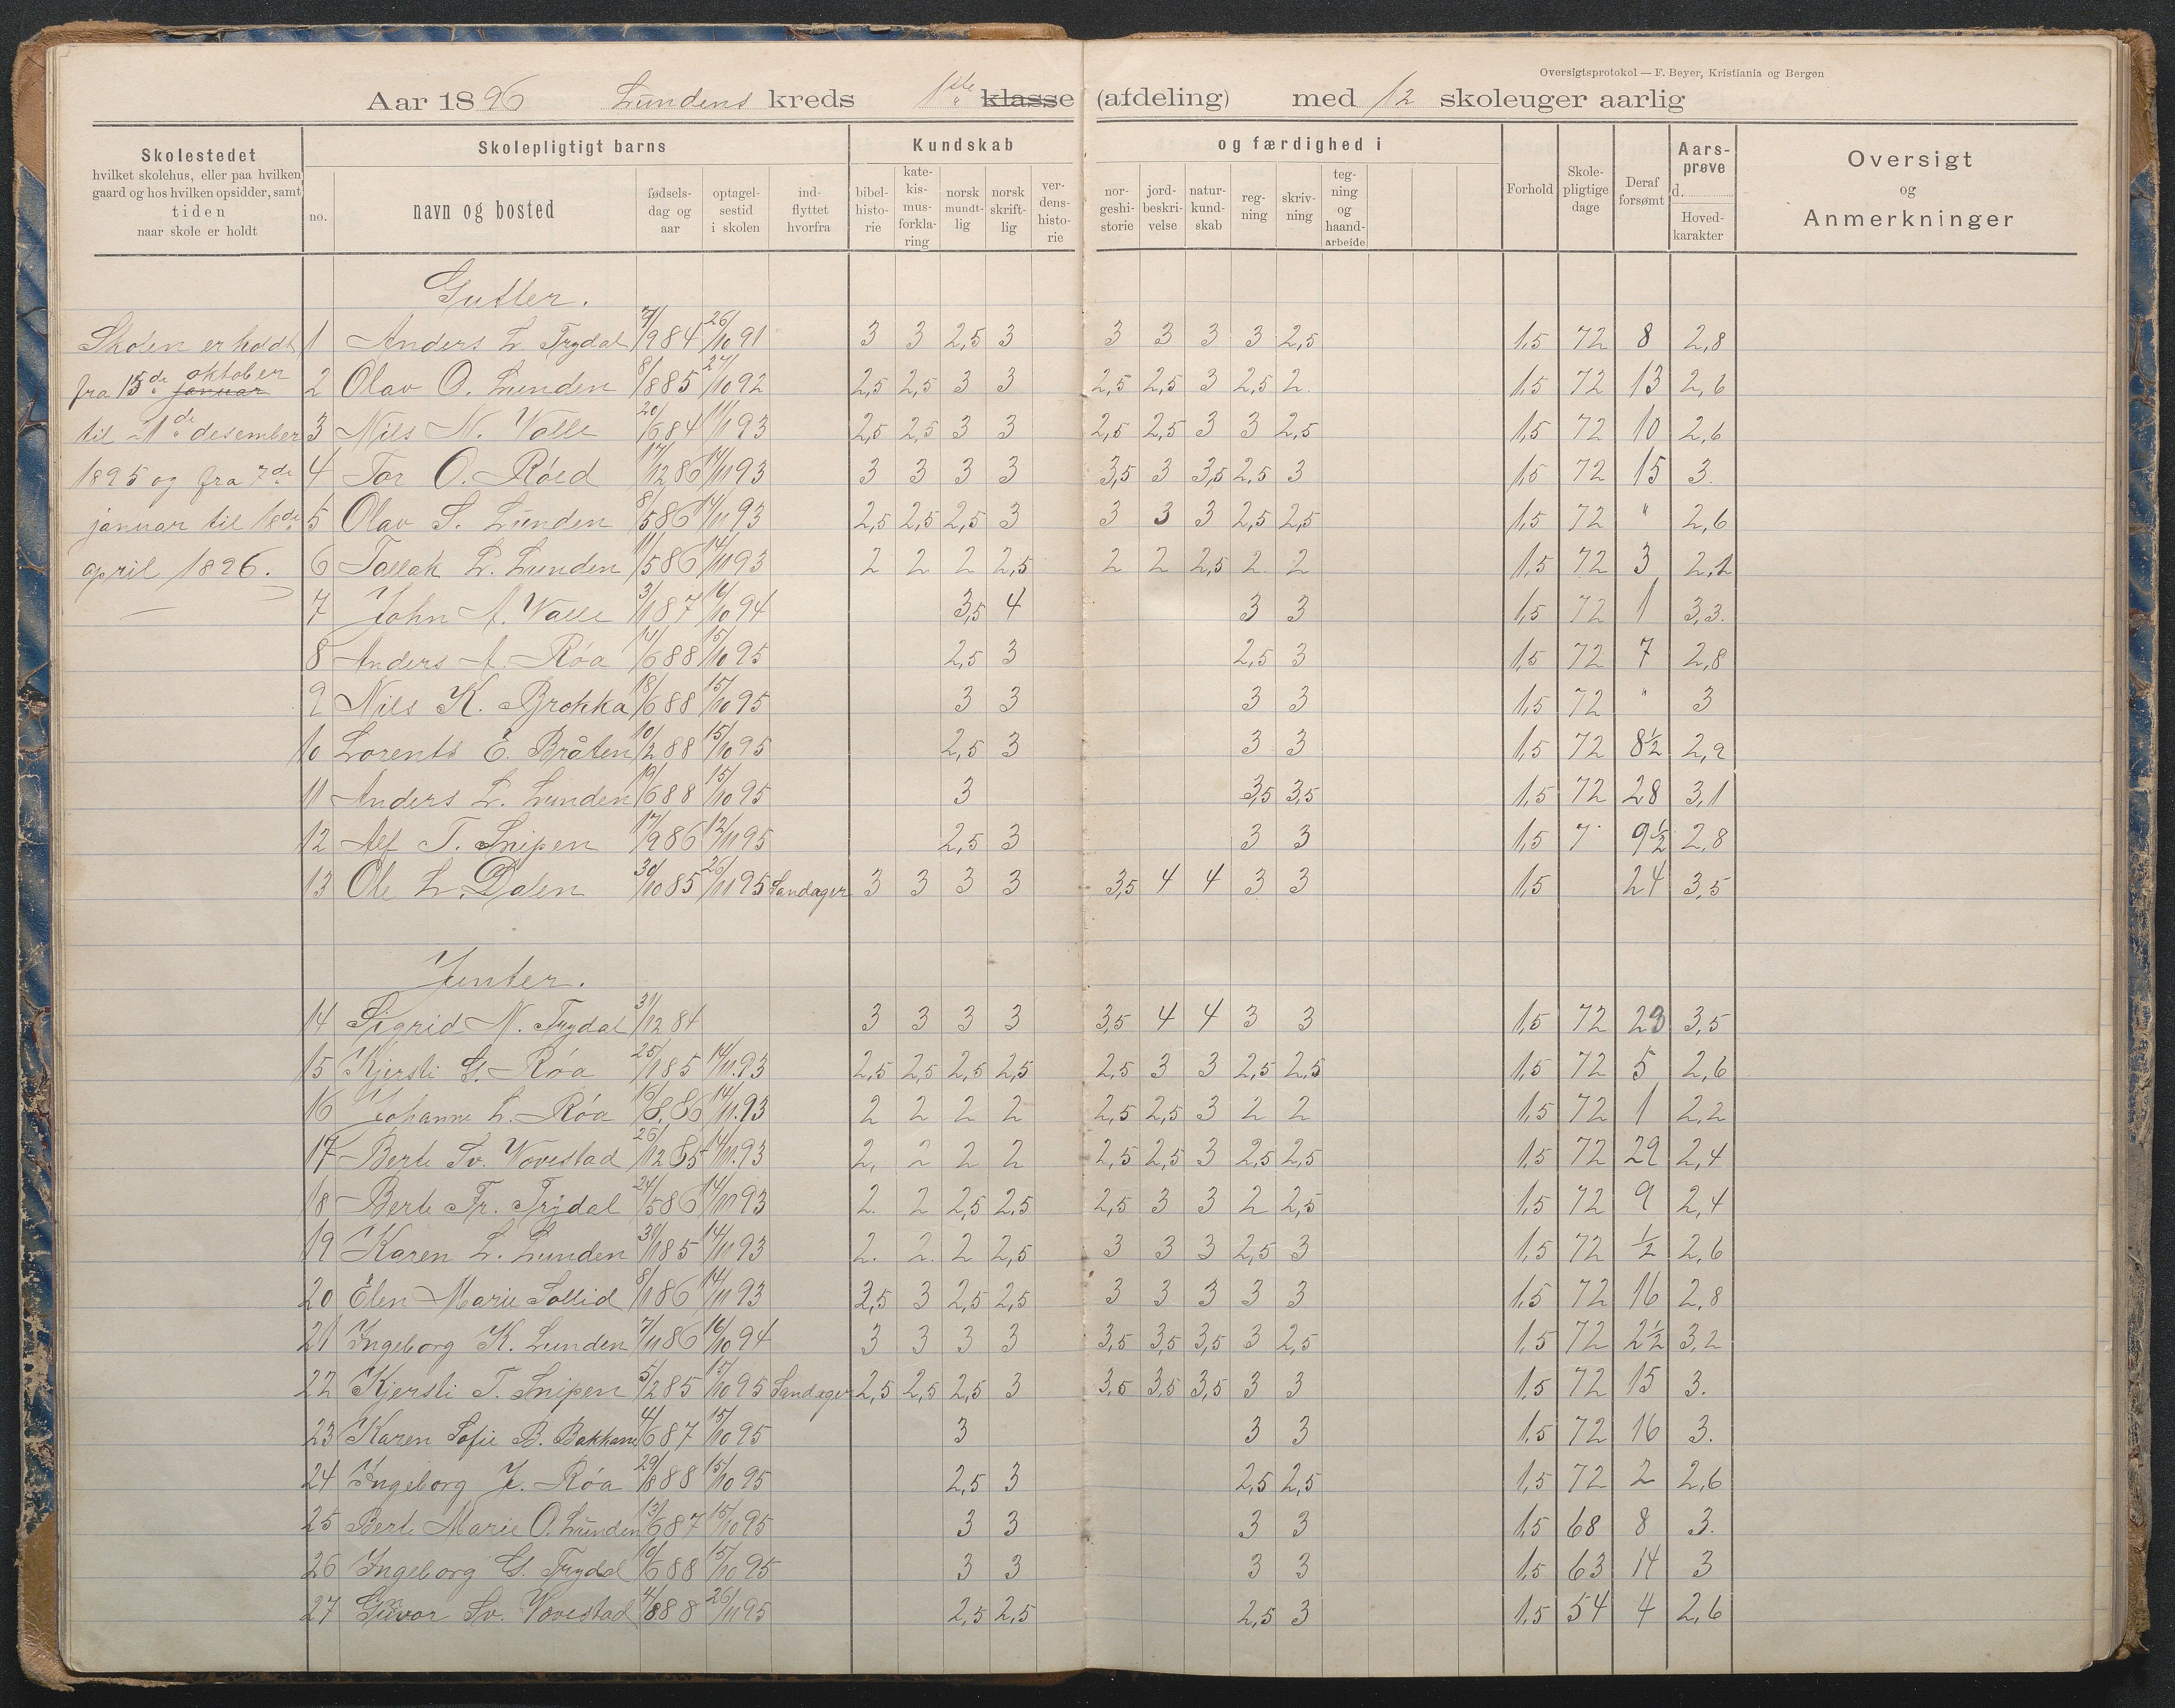 Oversigtsprotokol — F. Beyer, Kristiania og Bergen
Aar 1896 Lundens kreds 1ste klasse (afdeling) med 12 skoleuger aarlig
Skolestedet
hvilket skolehus, eller paa hvilken
gaard og hos hvilken opsidder, samt
tiden
naar skole er holdt
Skolepligtigt barns
no. navn og bosted fødselsdag og aar optagelsestid i skolen indflyttet hvorfra
Kundskab og færdighed i
bibelhistorie katekismusforklaring norsk mundtlig norsk skriftlig verdenshistorie norgeshistorie jordbeskrivelse naturkundskab regning skrivning tegning og haandarbeide
Forhold Skolepligtige dage Deraf forsømt Aarsprøve d. Hovedkarakter
Oversigt
og
Anmerkninger
Skolen er holdt
fra 15de oktober januar
til 21de desember
1895 og fra 7de
januar til 18de
april 1896.
Gutter.
1 Anders L. Trydal 7/9 84 26/10 91 3 3 2,5 3 3 3 3 3 2,5 1,5 72 8 2,8
2 Olav O. Lunden 8/8 85 27/10 92 2,5 2,5 3 3 2,5 2,5 3 2,5 2 1,5 72 13 2,6
3 Nils N. Valle 20/6 84 11/11 93 2,5 2,5 3 3 2,5 2,5 3 3 2,5 1,5 72 10 2,6
4 Tor O. Røed 17/12 86 14/11 93 3 3 3 3 3,5 3 3,5 2,5 3 1,5 72 15 3.
5 Olav S. Lunden 8/5 86 14/11 93 2,5 2,5 2,5 3 3 3 3 2,5 2,5 1,5 72 " 2,6
6 Tallak L. Lunden 11/5 86 14/11 93 2 2 2 2,5 2 2 2,5 2 2 1,5 72 3 2,1
7 John A. Valle 3/1 87 16/10 94 3,5 4 3 3 1,5 72 1 3,3.
8 Anders A. Røa 14/6 88 15/10 95 2,5 3 2,5 3 1,5 72 7 2,8
9 Nils K. Brokka 18/6 88 15/10 95 3 3 3 3 1,5 72 " 3
10 Lorents E. Bråten 10/2 88 15/10 95 2,5 3 3 3 1,5 72 8½ 2,9
11 Anders L. Lunden 19/6 88 15/10 95 3 3,5 3,5 1,5 72 28 3,1
12 Alf T. Snipen 17/9 86 12/11 95 2,5 3 3 3 1,5 7 9½ 2,8
13 Ole L. Dalen 30/10 85 26/11 95 Landager 3 3 3 3 3,5 4 4 3 3 1,5 24 3,5
Jenter.
14 Sigrid N. Trydal 31/12 84 3 3 3 3 3,5 4 4 3 3 1,5 72 29 3,5
15 Kjersti G. Røa 25/1 85 14/11.93 2,5 2,5 2,5 2,5 2,5 3 3 2,5 2,5 1,5 72 5 2,6
16 Johanne L. Røa 16/8.86 14/11.93 2 2 2 2 2,5 2,5 3 2 2 1,5 72 1 2,2
17 Berte Sv. Vovestad 26/12 85 14/11.93 2. 2 2 2 2,5 2,5 3 2,5 2,5 1,5 72 29 2,4
18 Berte Tr. Trydal 24/5 86 14/11 93 2. 2 2,5 2,5 2,5 3 3 2 2,5 1,5 72 9 2,4
19 Karen L. Lunden 30/1 85 14/11 93 2. 2. 2 2,5 3 3 3 2,5 3 1,5 72 ½ 2,6
20 Elen Marie Sollid 8/1 86 14/11 93 2,5 3 2,5 2,5 3 3 3 3 3 1,5 72 16 2,8
21 Ingeborg K. Lunden 7/11 86 16/10 94 3 3 3 3 3,5 3,5 3,5 3 2,5 1,5 72 2½ 3,2
22 Kjersti T. Snipen 5/2 85 15/10 95 Landager 2,5 2,5 2,5 3 3,5 3,5 3,5 3 3 1,5 72 15 3.
23 Karen Sofie B. Bakkane 4/6 87 15/10 95 3 3 3 1,5 72 16 3.
24 Ingeborg J. Røa 29/8 88 15/10 95 2,5 3 2,5 2,5 1,5 72 2 2,6
25 Berte Marie O. Lunden 13/6 87 15/10 95 3 3 3 3 1,5 68 8 3.
26 Ingeborg G. Trydal 10/6 88 15/10 95 3 3 3 3 1,5 63 14 3
27 Gunvor Sv. Vovestad 4/8 88 26/11 95 2,5 2,5 2,5 3 1,5 54 4 2,6